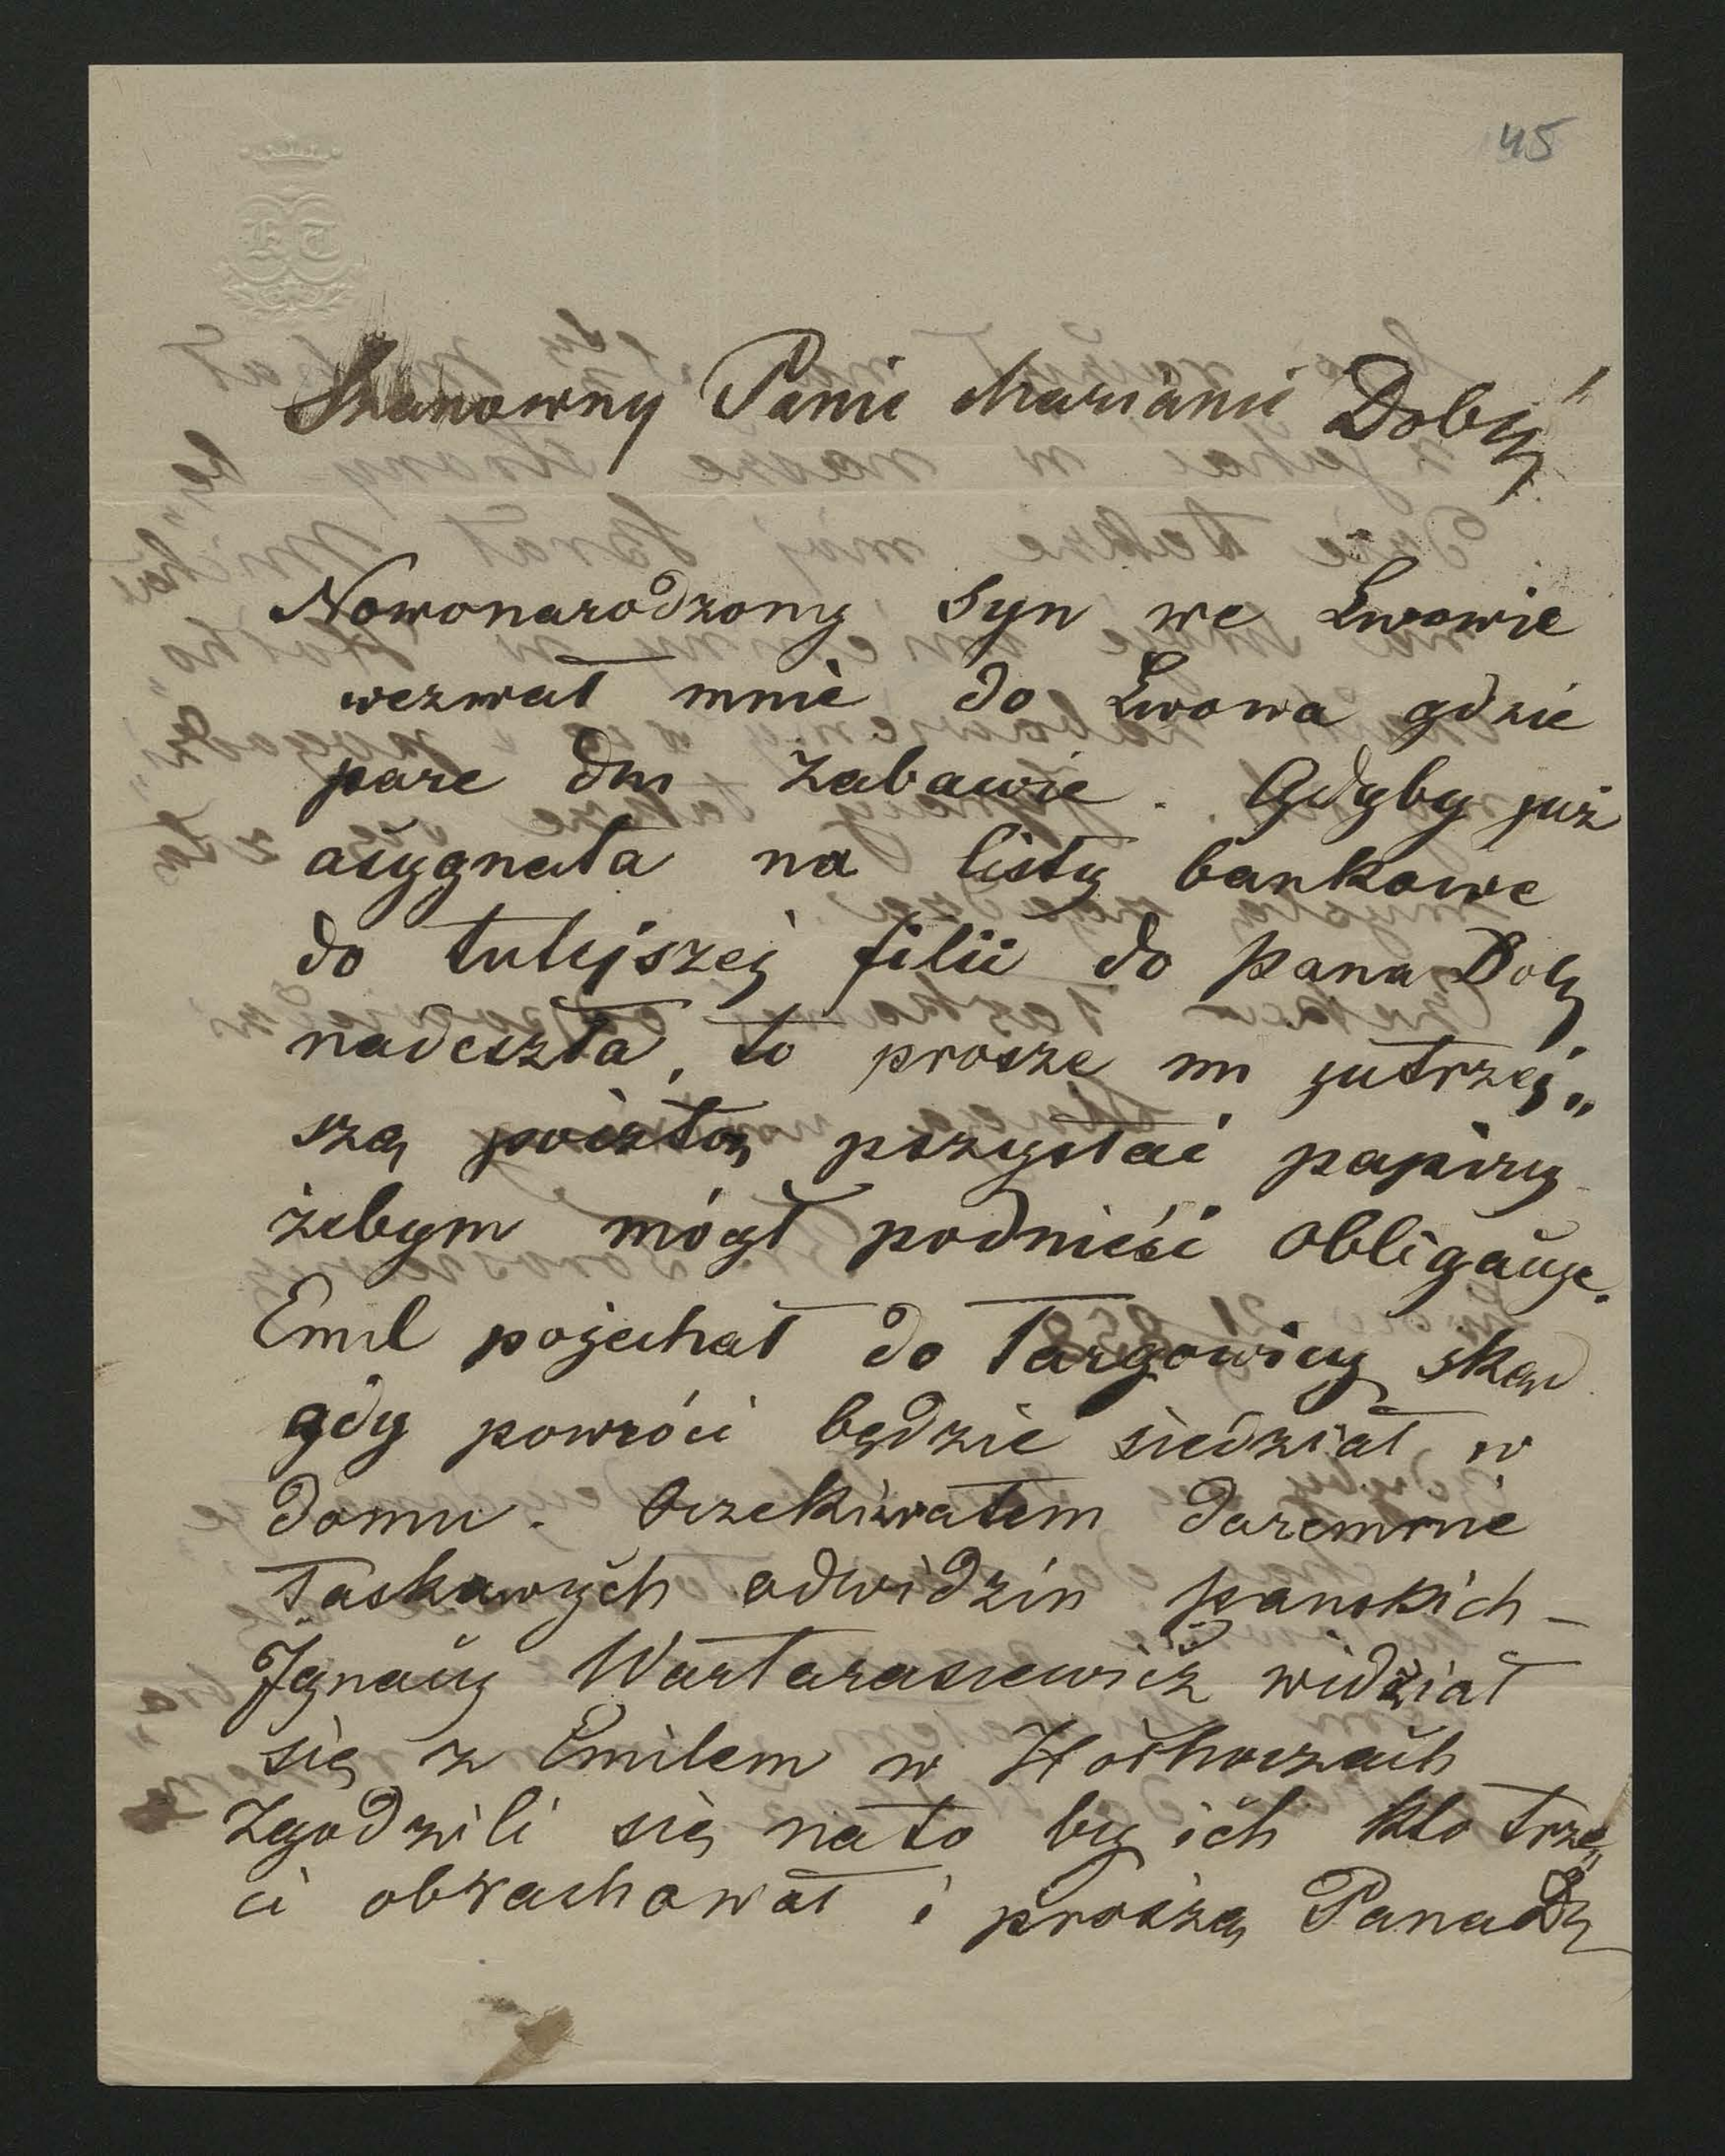 45
KT
Szanowny Panie Marianie Dobr"
Nowonarodzony syn we Lwowie
wezwał mnie do Lwowa gdzie
pare dni zabawie. Gdyby już
asygnata na listy bankowe
do tutejszej filii do pana Dob
nadeszła, to prosze mi jutrzej„
szą pocztą pszysłać papiry
żebym mógł podnieść obligacye.
Emil pojechał do Targowicy skąd
gdy powróci będzie siedział w
domu. Oczekiwałem daremnie
łaskawych odwidzin pańskich –
Ignacy Wartarasiewicz widział
się z Emilem w Hołhoczach
zgodzili się na to by ich kto trze„
ci obrachował i proszą Pana D